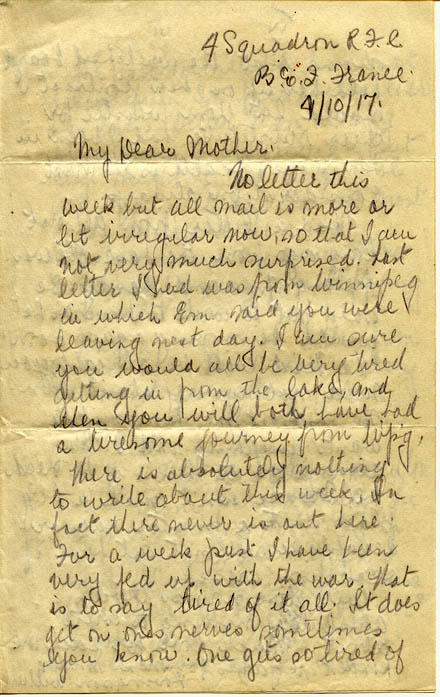 4 Squadron R.F.C.
B.E.F. France.
4/10/17.
My Dear Mother.
No letter this
week but all mail is more or
let irregular now, so that I am
not very much surprised. Last
letter I had was from Winnipeg
in which Em said you were
leaving next day. I am sure
you would all be very tired
getting in from the Lake, and
then you will both have had
a tiresome journey from Wpg.
There is absolutely nothing
to write about this week, In
fact there never is out here
For a week past I have been
very fed up with the war, that
is to say tired of it all. It does
get on ones nerves sometimes
you know. One gets so tired of